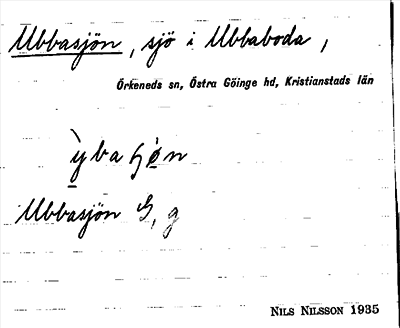 Ubbasjön, sjö i Ubbaboda,
Örkeneds sn, Östra Göinge hd, Kristianstads län
Ubbasjön G, g
NILS NILSSON 1935